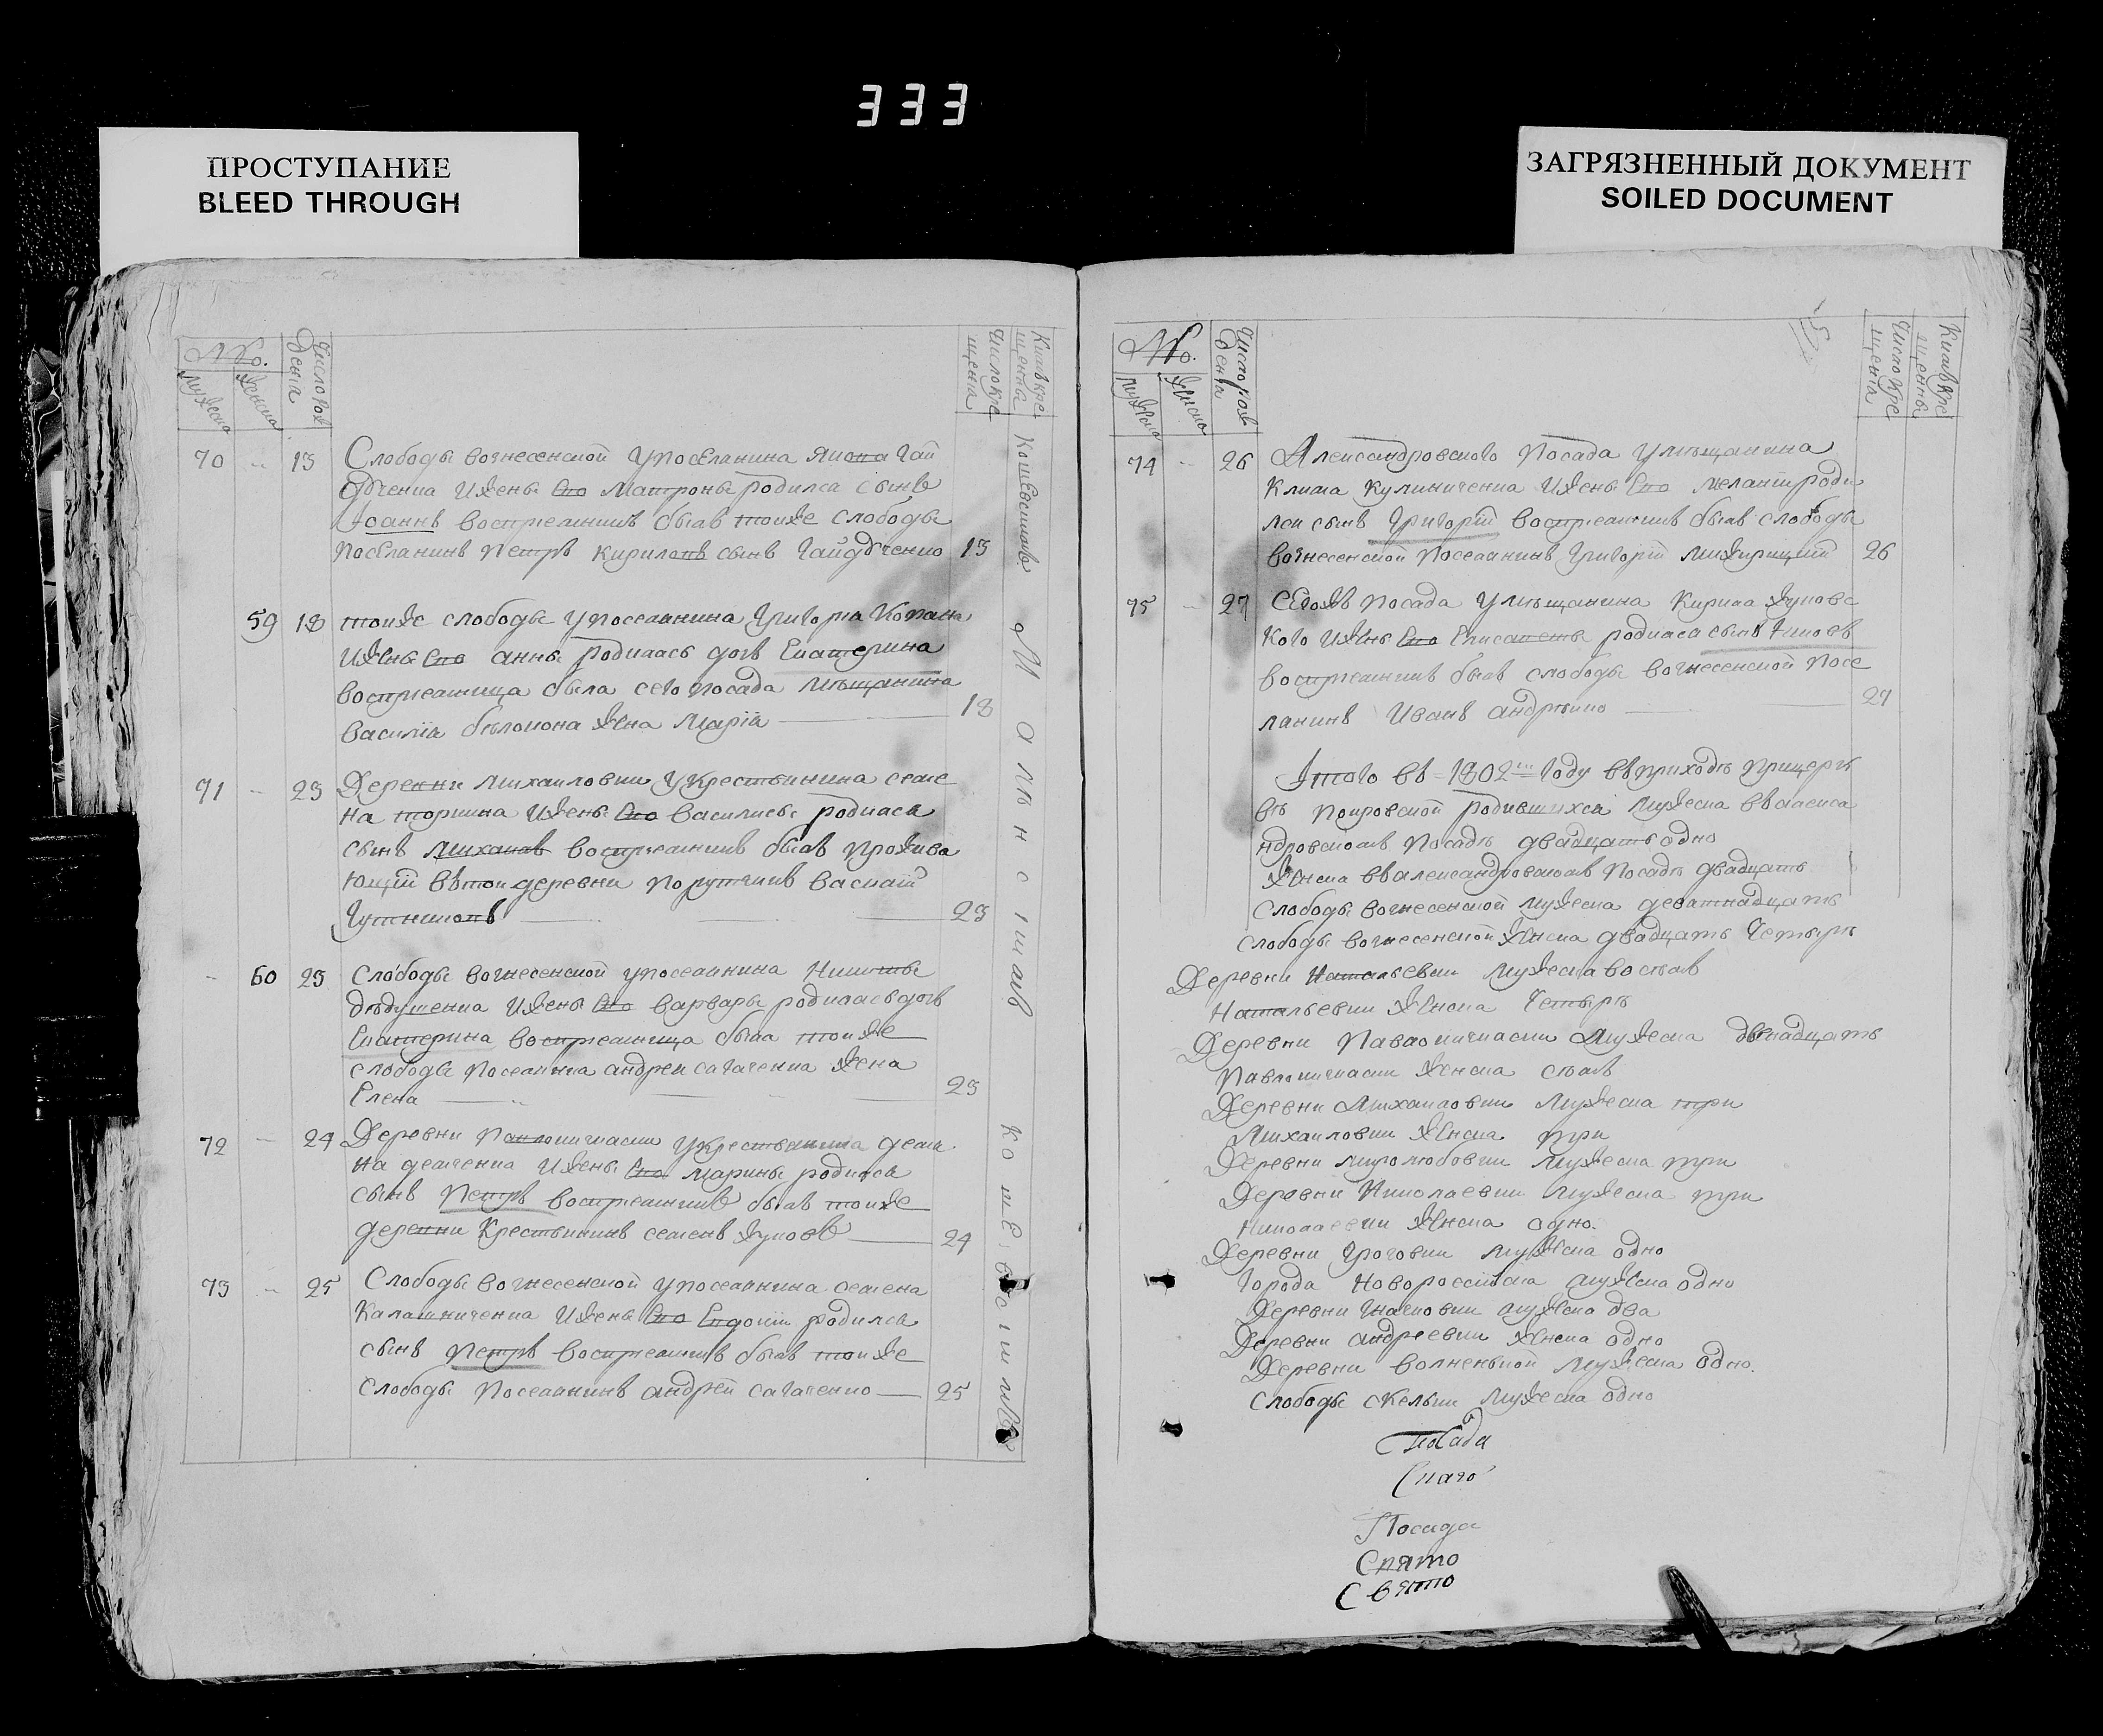 333
ПРОСТУПАНИЕ
BLEED THROUGH
ЗАГРЯЗНЕННЫЙ ДОКУМЕНТ
SOILED DOCUMENT
№.
мужеска
женска
Число рож
дения
Число кре
щения
Кимъ кре
щенны
70 13 Слободы вознесенской упоселанина якова гай
дученка ижены Его Матроны родился сынъ
Иоаннъ восприемникъ былъ тойже слободы
Поселанинъ Петръ Кириловъ сынъ Гайдученко 13
59 18 тойже слободы упоселанина Григория
ижены Его анны родилась дочъ Екатерина
восприемница была сего посада мещанина
василїа белоконя жена Марїа 18
71 23 Деревни михайловки укрестьянина семе
на ижены Его василисы родился
сынъ михаилъ восприемникъ былъ прожива
ющїй въ той деревни порутчикъ василїй
23
60 23 Слободы вознесенской упоселанина Никиты
дедушенка ижены Его варвары родиласъ дочъ
Екатерина восприемница была тойже
слободы поселанина андрея сагаченка жена
Елена 23
72 24 Деревни Павлокичкаски укрестьянина деми
на демченка ижены Его марины родился
сынъ Петръ восприемникъ былъ тойже
деревни крестьянинъ семенъ жуковъ 24
73 25 Слободы вознесенской упоселанина семена
Калашниченка ижены Его Евдокїи родился
сынъ Петръ восприемникъ былъ тойже
слободы Поселанинъ андрей сагаченко 25
№.
мужеска
женска
Число рож
дения
Число кре
щения
Кимъ кре
щенны
74 26 Александровского Посада умѣщанина
Клима Кулиниченка ижены Его меланїи роди
лся сынъ Григорїй восприемникъ былъ слободы
вознесенской Поселанинъ Григорїй 26
75 27 Сегожъ Посада умѣщанина Кирила жуковс
кого ижены Его Елисаветы родился сынъ Іаковъ
восприемникъ былъ слободы вознесенской посе
ланинъ Иванъ андрѣйко 27
Итого въ 1802м году въ приходѣ прицерк
вѣ Покровской родившихся мужеска въ алекса
ндровскомъ Посадѣ двадцать одно
женска въ александровскомъ Посадѣ двадцать
Слободы вознесенской мужеска деватнадцать
слободы вознесенской женска двадцать четыри
Деревни Натальевки мужеска восъмъ
Натальевки женска четыри
Деревни Павлокичкаски мужеска двенадцать
Павлокичкаски женска сѣмъ
Деревни Михайловки мужеска три
Михайловки женска три
Деревни миролюбовки мужеска три
Деревни Николаевки мужеска три
Николаевки женска одно.
Деревни мужеска одно
города Новороссїйска мужеска одно
Деревни мужеска два
Деревни андреевки женска одно
Деревни мужеска одно.
слободы скельки мужеска одно
Посада
Посада
Свято
Свято